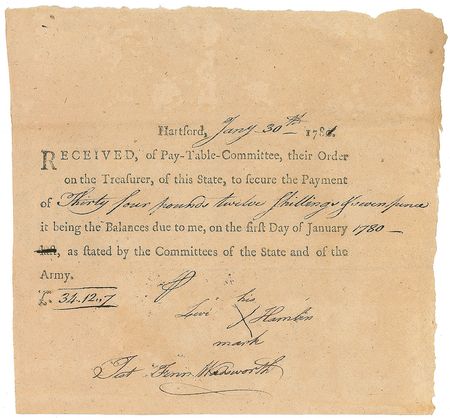 Hartford, Jany 30th 1781.
RECEIVED, of Pay-Table-Committee, their Order
on the Treasurer, of this State, to secure the Payment
of Thirty four pounds twelve Shillings & seven pence
it being the Balances due to me, on the first Day of January 1780 -
last, as stated by the Committees of the State and of the
Army.
£. 34.12.,7
his
Levi X Hamlin
mark
Test Fenn Wadsworth